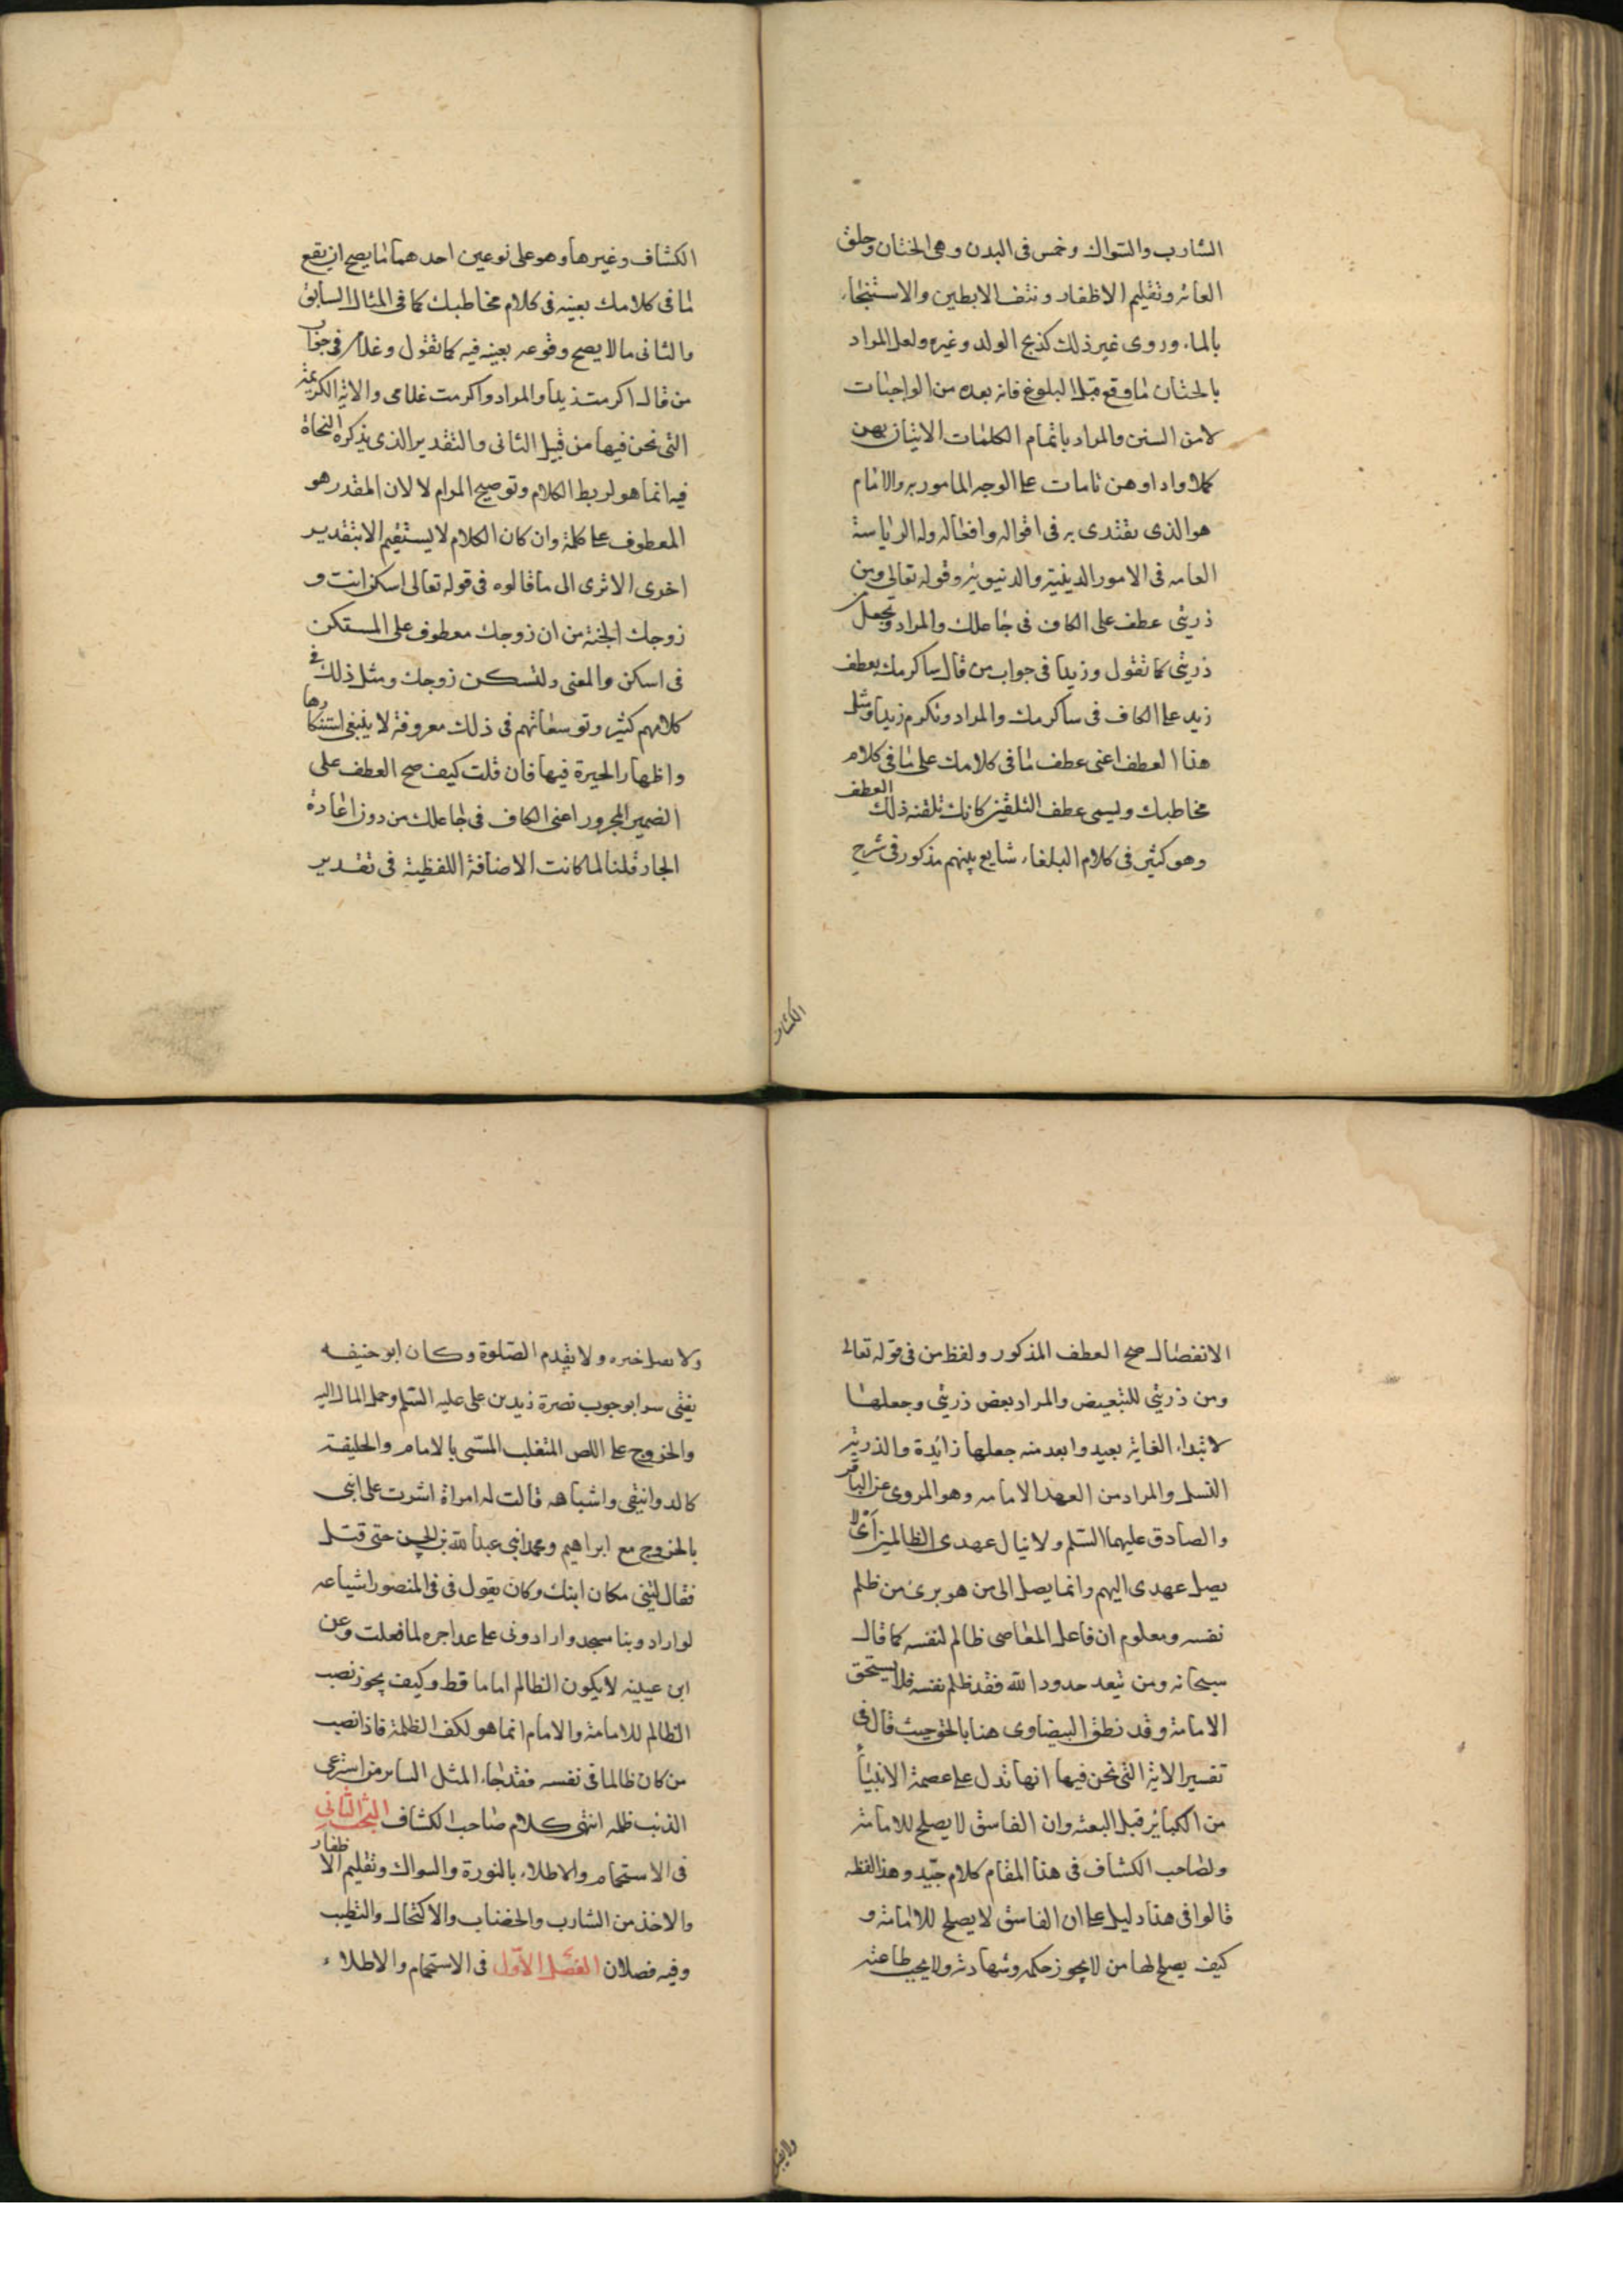 الشارب والسواك وخمس فى البدن وهى الختان وحلق
العانه وتقليم الاظفار ونتف الابطين والاستنجاء
بالماء وروى غير ذلك كذبح الولد وغيره ولعل المراد
بالختان ما وقع قبل البلوغ فانه بعده من الواجبات
لا من السنن والمراد باتمام الكلمات الاتيان بهن
كملا واداوهن تامات على الوجه المامور به والامام
هو الذى يقتدى به فى اقواله وافعاله وله الرياسة
العامه فى الامور الدينية والدنيوية وقوله تعالى ومن
ذريتى عطف على الكاف فى جاعلك والمراد وتجعل
ذريتى كما تقول وزيدا فى جواب من قال ساكرمك بعطف
زيد على الكاف فى ساكرمك والمراد وتكرم زيدا ومثل
هذا العطف اعنى عطف ما فى كلامك على ما فى كلام
مخاطبك ويسمى عطف التلقين كانك تلقنه ذلك العطف
وهو كثير فى كلام البلغاء شايع بينهم مذكور فى شرح
الكشاف
الكشاف وغيرها وهو على نوعين احدهما ما يصح ان يقع
ما فى كلامك بعينه فى كلام مخاطبك كما فى المثال السابق
والثانى ما لا يصح وقوعه بعينه فيه كما تقول وغلامى فى جواب
من قال اكرمت زيدا والمراد واكرمت غلامى والاية الكريمة
التى نحن فيها من قبيل الثانى والتقدير الذى يذكره النحاة
فيه انما هو لربط الكلام وتوضيح المرام لا لان المقدر هو
المعطوف على كلمة وان كان الكلام لا يستقيم الا بتقدير
اخرى الا ترى الى ما قالوه فى قوله تعالى اسكن انت و
زوجك الجنة من ان زوجك معطوف على المستكن
فى اسكن والمعنى ولتسكن زوجك ومثل ذلك فى
كلامهم كثير وتوسعاتهم فى ذلك معروفة لا ينبغى استنكارها
واظهار الحيرة فيها فان قلت كيف صح العطف على
الضمير المجرور اعنى الكاف فى جاعلك من دون اعادة
الجار قلنا لما كانت الاضافة اللفظية فى تقدير
الانفصال صح العطف المذكور ولفظ من فى قوله تعالى
ومن ذريتي للتبعيض والمراد بعض ذريتي وجعلها
لابتداء الغاية بعيد وابعد منه جعلها زائدة والذرية
النسل والمراد من العهد الامامه وهو المروى عن الباقر
والصادق عليهما السلم ولا ينال عهدى الظالمين اى لا
يصل عهدى اليهم وانما يصل الى من هو برئ من ظلم
نفسه ومعلوم ان فاعل المعاصى ظالم لنفسه كما قال
سبحانه ومن يتعد حدود الله فقد ظلم نفسه فلا يستحق
الامامة وقد نطق البيضاوى هنا بالحق حيث قال فى
تفسير الاية التى نحن فيها انها تدل على عصمة الانبياء
من الكبائر قبل البعثه وان الفاسق لا يصلح للامامة
ولصاحب الكشاف فى هذا المقام كلام جيد وهذا لفظه
قالوا فى هذا دليل على ان الفاسق لا يصلح للامامة و
كيف يصلح لها من لا يجوز حكمه وشهادته ولا يجب طاعته
ولا يقبل
ولا يصل خبره ولا يقدم الصلوة وكان ابو حنيفه
يفتى سرا بوجوب نصرة زيد بن على عليه السلم وحمل المال اليه
والخروج على اللص المتغلب المسمى بالامام والخليفة
كالدوانيقى واشباهه قالت له امراة اشرت على ابنى
بالخروج مع ابراهيم ومحمد ابنى عبد الله بن الحسن حتى قتل
فقال ليتنى مكان ابنك وكان يقول فى المنصور واشياعه
لو ارادوا بناء مسجد وارادونى على عد اجره لما فعلت وعن
ابن عيينه لا يكون الظالم اماما قط وكيف يجوز نصب
الظالم للامامة والامام انما هو لكف الظلمة فاذا نصب
من كان ظالما فى نفسه فقد جاء المثل الساير من استرعى
الذئب ظلم انتهى كلام صاحب الكشاف البحث الثانى
فى الاستحمام والاطلاء بالنورة والسواك وتقليم الاظفار
والاخذ من الشارب والخضاب والاكتحال والتطيب
وفيه فصلان الفصل الاول فى الاستحمام والاطلاء